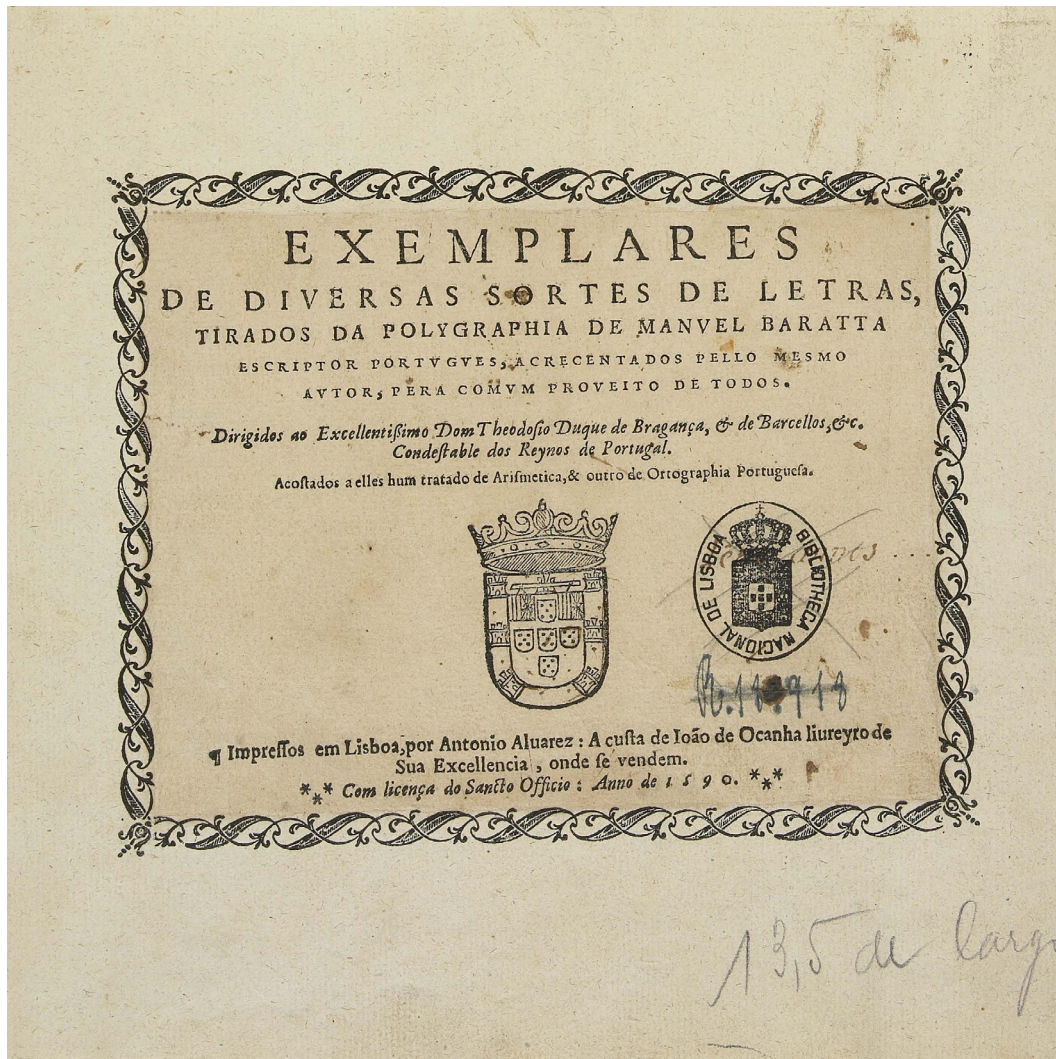 EXEMPLARES
DE DIVERSAS SORTES DE LETRAS,
TIRADOS DA POLYGRAPHIA DE MANVEL BARATTA
ESCRIPTOR PORTVGVES, ACRECENTADOS PELLO MESMO
AVTOR, PERA COMVM PROVEITO DE TODOS.
Dirigidos ao Excellentißimo Dom Theodoſio Duque de Bragança, & de Barcellos, &c.
Condeſtable dos Reynos de Portugal.
Acoſtados a elles hum tratado de Ariſmetica, & outro de Ortographia Portugueſa.
BIBLIOTHECA NACIONAL DE LISBOA
¶ Impreſſos em Lisboa, por Antonio Aluarez : A cuſta de Ioão de Ocanha liureyro de
Sua Excellencia, onde ſe vendem.
*** Com licença do Sancto Officio : Anno de 1590. ***
13,5 de